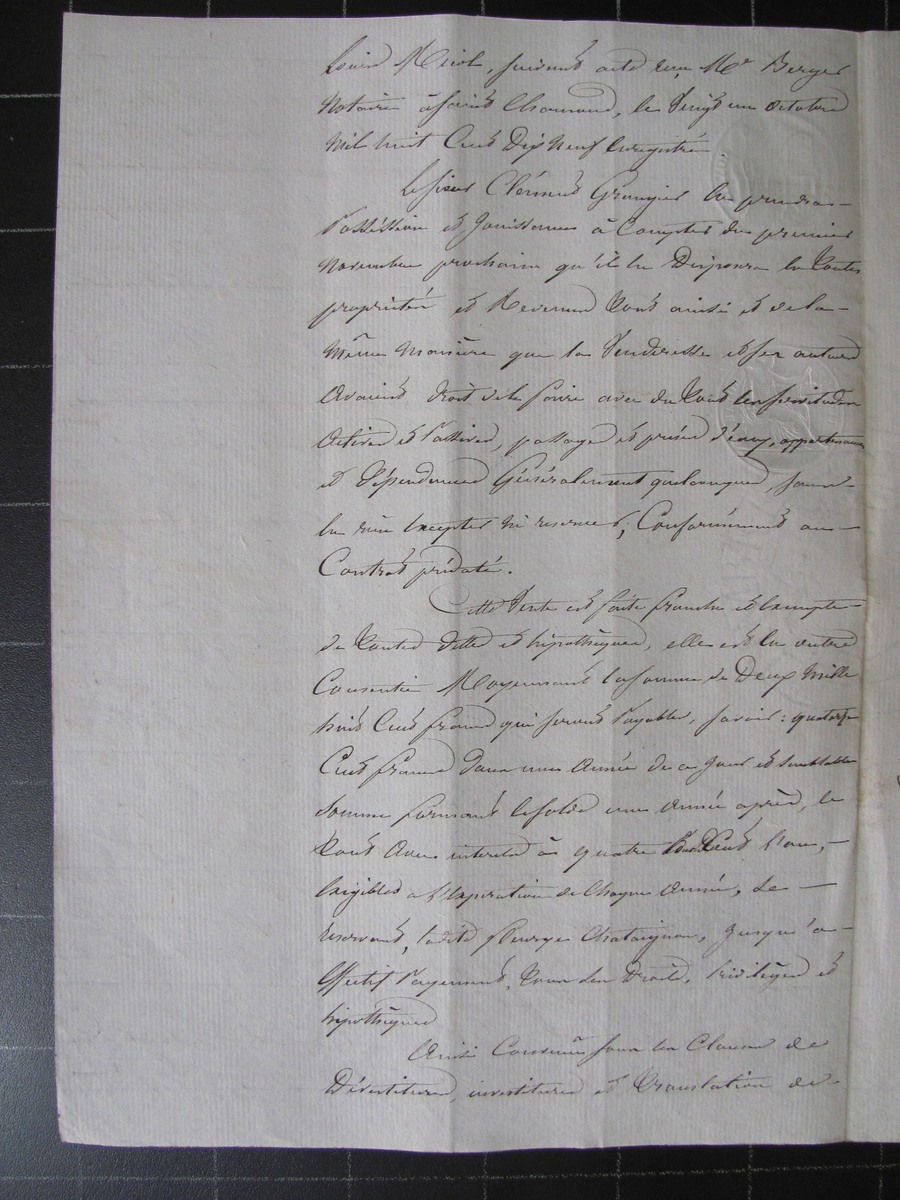 Louis Micol, suivant acte reçu Me Berger
Notaire à Saint Chamond, le Vingt un octobre
mil huit Cent Dix Neuf Enregistré.
Le sieur Clément Grangier en prendra
Possession et Jouissance à Compter du premier
Novembre prochain qu'il en Disposera en toutes
propriétés et Revenus tout ainsi et de la
même manière que la Venderesse et ses auteurs
Avaient droit de le faire avec de tous les servitudes
Actives et Passives, passages et prises d'eaux, appartenances
et Dépendances Généralement quelconques, sans
en rien Excepter ni réserver, Conformément au
Contrat prédaté.
Cette Vente est faite franche et Exempte
de toutes dettes et hipothèques, elle est en outre
Consentie Moyennant la somme de Deux Mille
huit Cents francs qui seront Payables, savoir: quatorze
Cents francs dans une Année de ce jour et semblable
somme formant le solde une Année après, le
tout avec intérêts à quatre Pour Cent l'an,
Exigibles à l'Expiration de Chaque Année, se
réservant, ladite Chataignon, jusqu'à
Effectif Payement, tous ses Droits, Privilèges et
hipothèques
Ainsi Convenu sous les Clauses de
Dévestitures, investitures et translation de